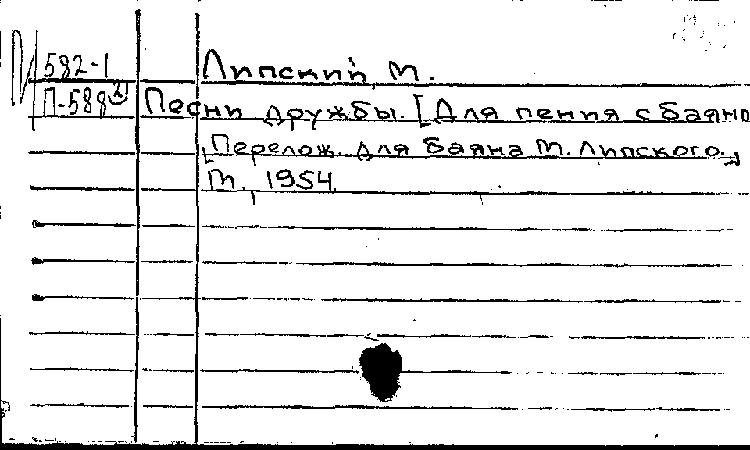 582-1 Липский, М.
П-588 Песни дружбы. [Для пения с баяно
[Перелож. для баяна М. Липского.]
М., 1954